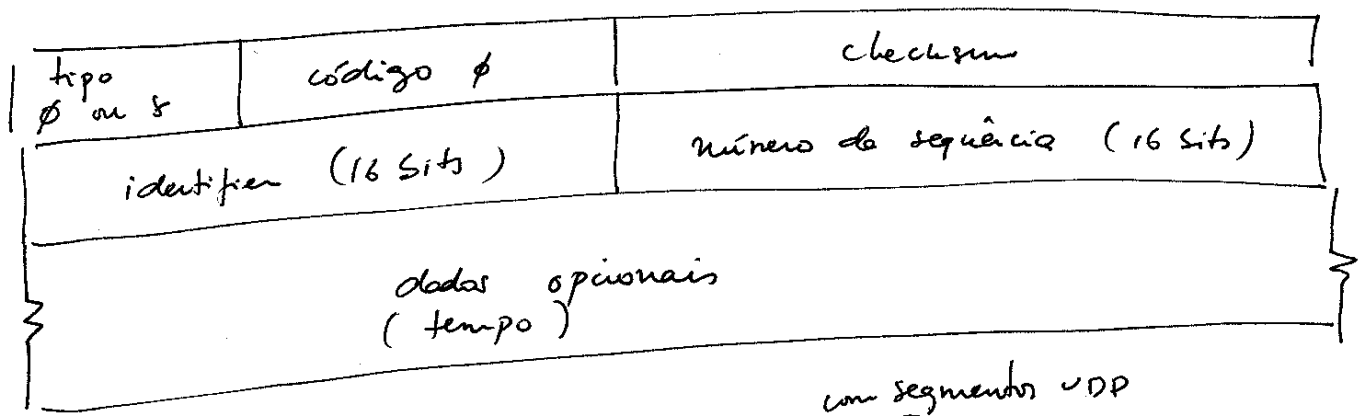 tipo código ø checksum
ø ou 8
identifier (16 bits) número de sequência (16 bits)
dados opcionais
(tempo)
com segmentos UDP